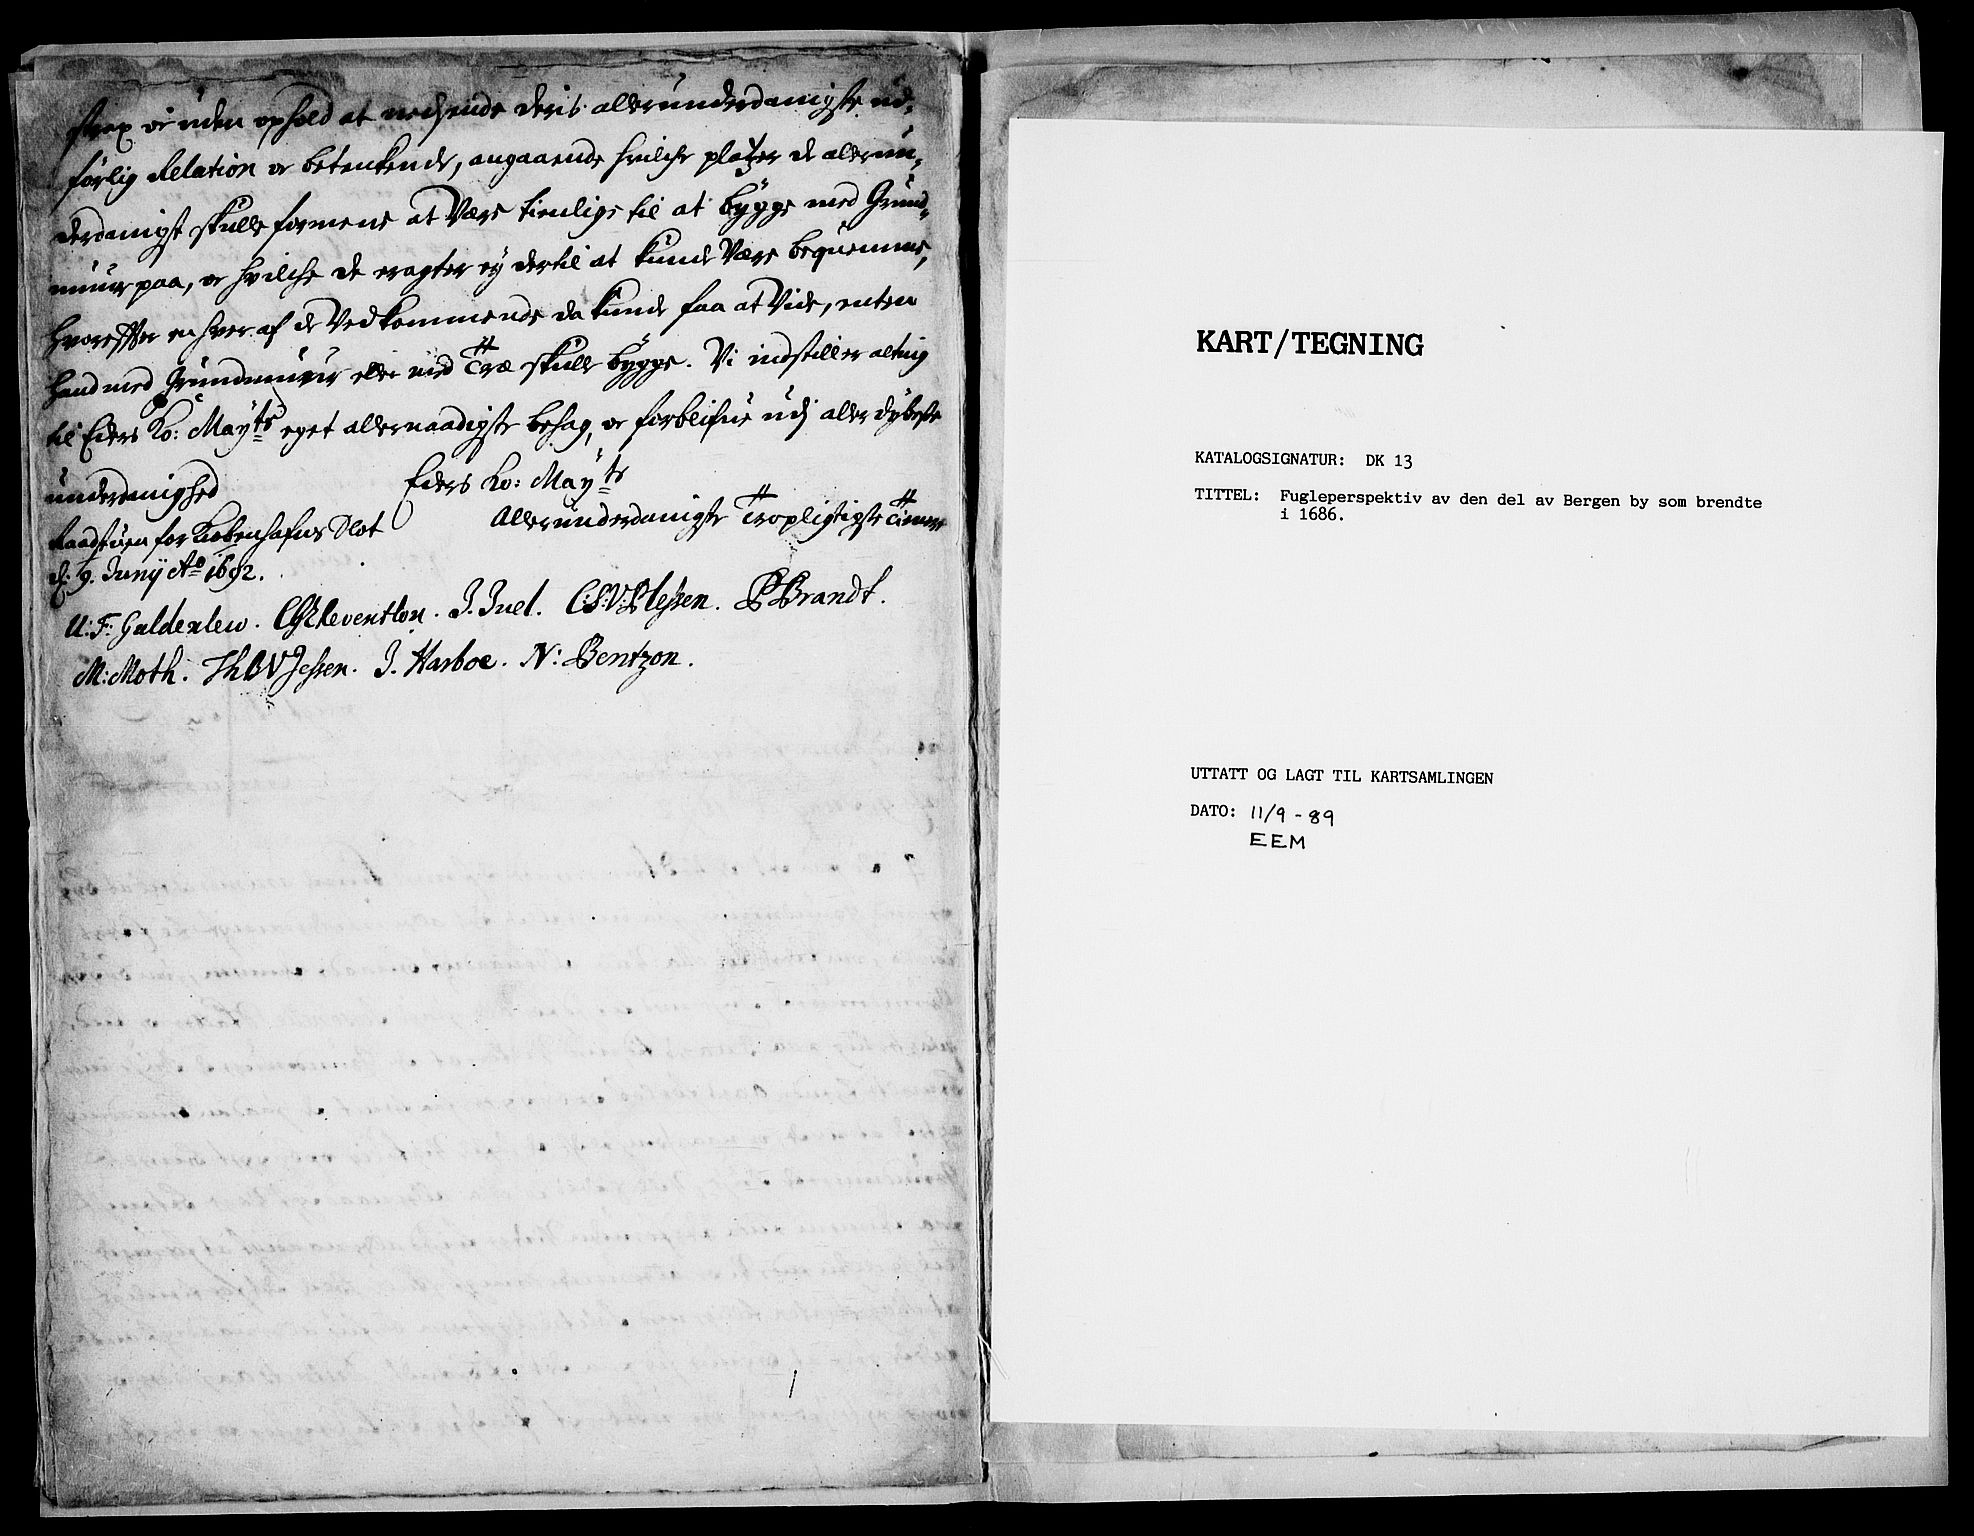 strax oc uden ophold at nedsende deris allerunderdanigste ud-
førlig Relation oc betenkende, angaaende hvilche platzer de allerun-
derdanigst skulle formene at Være tienlige til at bygge med Grund-
muur paa, oc hvilche de eragter ey dertil at kunde Være bequemme,
hvorefter en hver af de Vedkommende da kunde faa at Vide, enten
hand med Grundmuur eller med Træ skulle bygge. Vi indstiller alting
til Eders Ko: Mayts eget allernaadigste behag, oc forblifve udj aller dybeste
underdanighed
Eders Ko: Mayts
Raadstuen for Kiøbenhafns Slot
Allerunderdanigste Tropligtigste Tienere
d. 9. Junij Ao 1692.
U: F: Guldenlew. C Reventlow. J. Juel. C:S:V:Plessen. P Brandt.
M: Moth. Th B V Jessen. J. Harboe. N: Bentzon.
KART/TEGNING
KATALOGSIGNATUR: DK 13
TITTEL: Fugleperspektiv av den del av Bergen by som brendte
i 1686.
UTTATT OG LAGT TIL KARTSAMLINGEN
DATO: 11/9 - 89
EEM